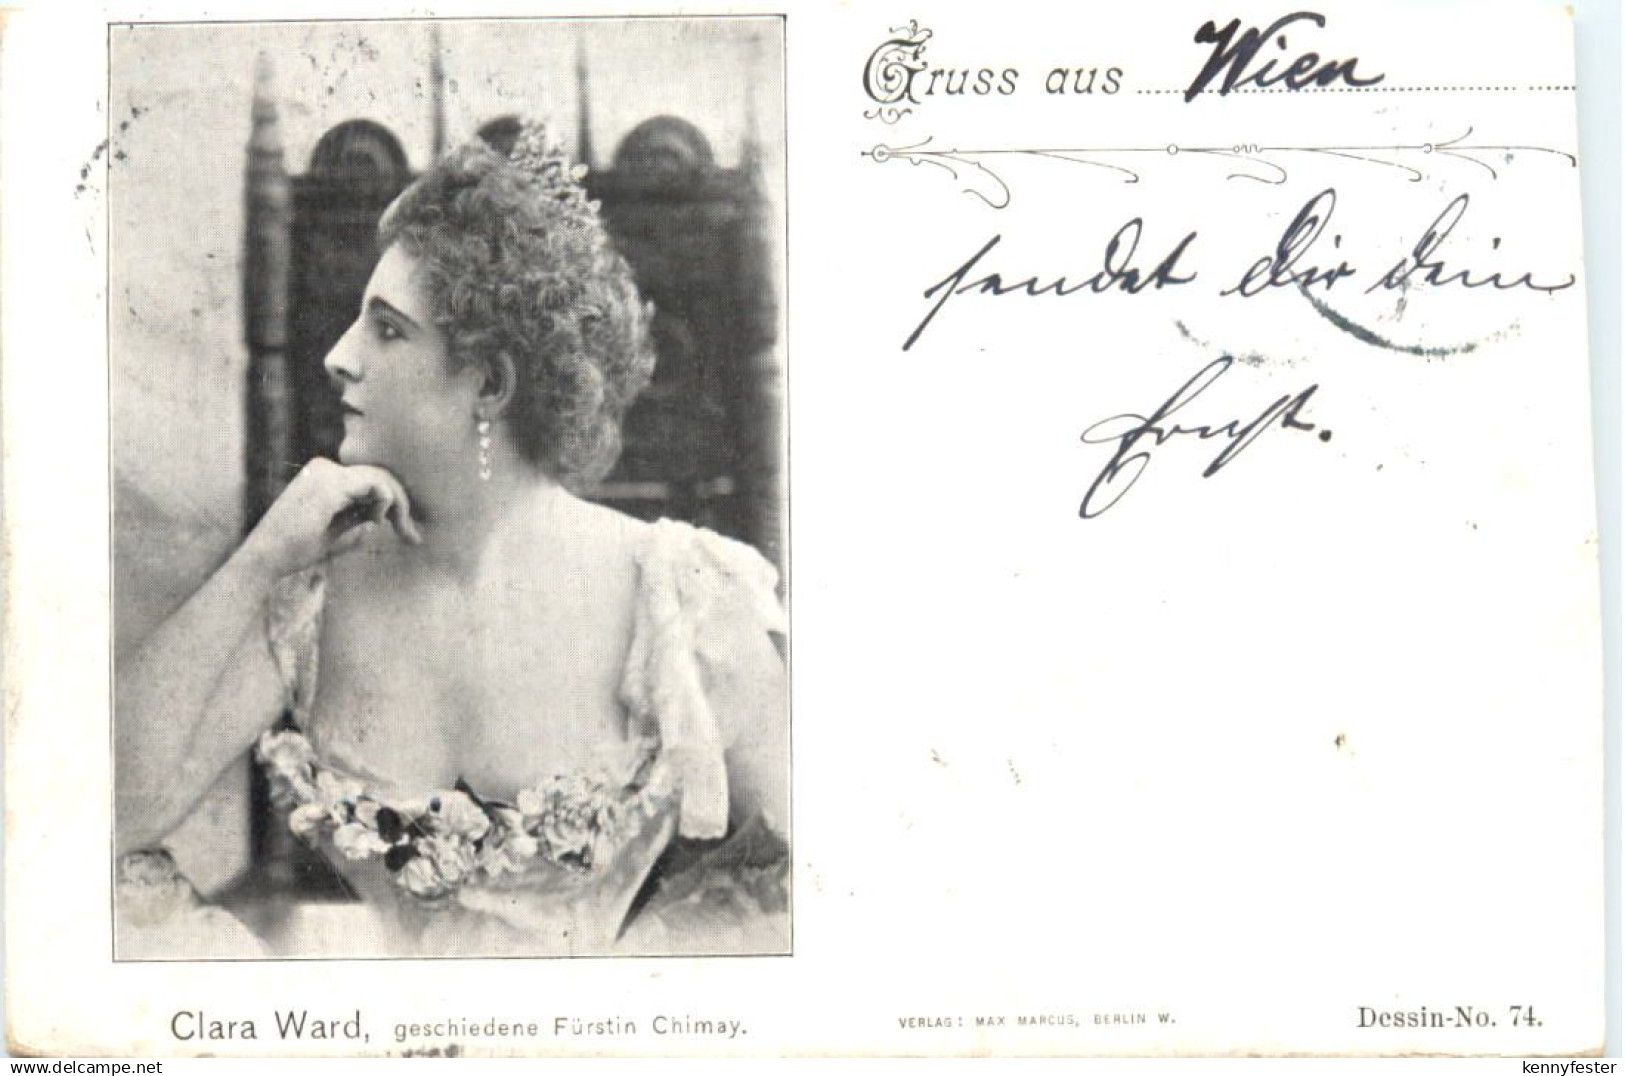 Gruss aus Wien
sendet Dir dein
Ernst.
Clara Ward, geschiedene Fürstin Chimay.
VERLAG: MAX MARCUS, BERLIN W.
Dessin-No. 74.
kennyfester